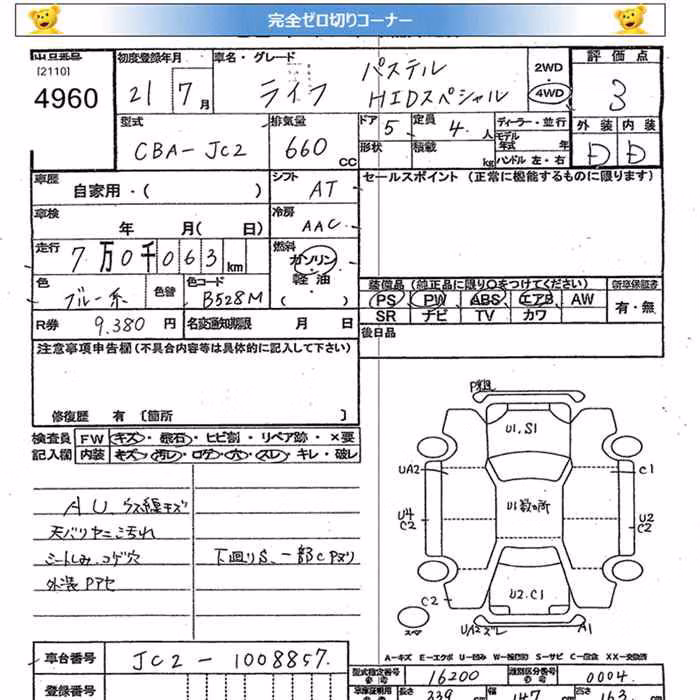 完全ゼロ切りコーナー
出品番号
[2110]
4960
初度登録年月
21 7月
車名・グレード
ライフ パステル
HIDスペシャル
2WD
・
4WD
評価点
3
型式
CBA-JC2
排気量
660 CC
ドア 5
定員 4 人
形状
積載 kg
ディーラー・並行
モデル年式 年
ハンドル 左・右
外装 内装
D D
車歴
自家用・( )
シフト AT
車検
年 月( 日)
冷房 AAC
走行
7万0千063 km
燃料
ガソリン・
軽油
( )
色
ブルー系
色替
色コード
B528M
R券 9.380 円
名変通知期限 月 日
セールスポイント (正常に機能するものに限ります)
装備品 (純正品に限り○をつけてください)
PS PW ABS エアB AW
SR ナビ TV カワ
新車保証書
有・無
後日品
注意事項申告欄(不具合内容等は具体的に記入して下さい)
修復歴 有 [箇所 ]
検査員
記入欄
FW キズ・飛石・ヒビ割・リペア跡・×要
内装 キズ・汚レ・コゲ・穴・スレ・キレ・破レ
AU ウス線キズ
天バリヤニこ汚れ
シートしみ.コゲ穴
外装Pアセ
下廻りS、一部CPヌリ
P飛
U1.S1
UA2
C1
U1数ヶ所
U4
C2
U2
C2
U2.C1
C2
スペア
UA2ズレ
A1
A-キズ E-エクボ U-凹ミ W-補修跡 S-サビ C-腐食 XX-交換済
車台番号 JC2-1008857.
型式指定番号 16200
類別区分番号 0004.
登録番号
長さ 339
幅 147
高さ 163